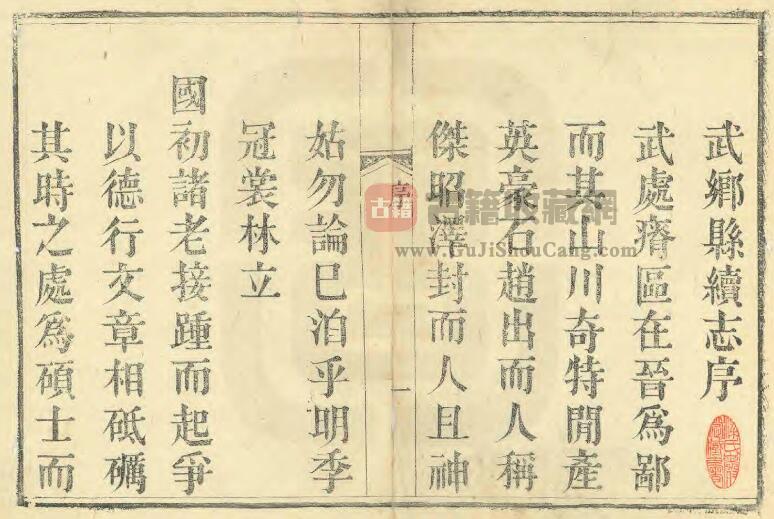 武鄉縣續志序
武處瘠區在晉為鄙
而其山川奇特閒產
英豪石趙出而人稱
傑昭澤封而人且神
序
一
姑勿論已洎乎明季
冠裳林立
國初諸老接踵而起爭
以德行文章相砥礪
其時之處為碩士而
古籍
古籍收藏網
www.GuJiShouCang.com